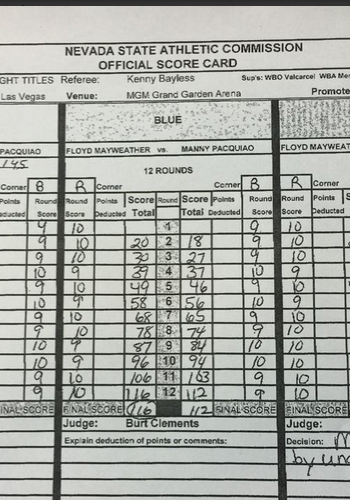 NEVADA STATE ATHLETIC COMMISSION
OFFICIAL SCORE CARD
GHT TITLES Referee: Kenny Bayless Sup's: WBO Valcarcel WBA Me
Las Vegas Venue: MGM Grand Garden Arena Promote
BLUE
PACQUIAO FLOYD MAYWEATHER vs. MANNY PACQUIAO FLOYD MAYWEAT
145 12 ROUNDS
Corner B R Corner Corner B R Corner
Points Round Round Points Score Round Score Points Round Round Points
Deducted Score Score Deducted Total Total Deducted Score Score Deducted
9 10 1 9 10
9 10 20 2 18 9 10
9 10 30 3 27 9 10
10 9 39 4 37 10 9
9 10 49 5 46 9 10
10 9 58 6 56 10 9
9 10 68 7 65 9 10
9 10 78 8 74 9 10
10 9 87 9 84 10 10
10 9 96 10 94 10 10
9 10 106 11 103 9 10
9 10 116 12 112 9 10
FINAL SCORE FINAL SCORE 116 112 FINAL SCORE FINAL SCORE
Judge: Burt Clements Judge:
Explain deduction of points or comments: Decision: M
by una